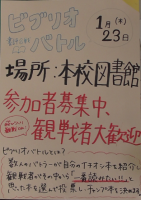 ビブリオ
バトル
1月(木)
23日
場所:本校図書館
参加者募集中、
観戦者大歓迎
ビブリオバトルとは?
数人のバトラーが自分のイチオシ本を紹介し
観戦者がその中から「一番読みたい!!」と
思った本を選んで投票し、チャンプ本を決めます